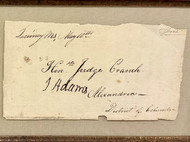 Quincy Ms. May 10th
Hon Judge Cranch
J Adams Alexandria
District of Columbia